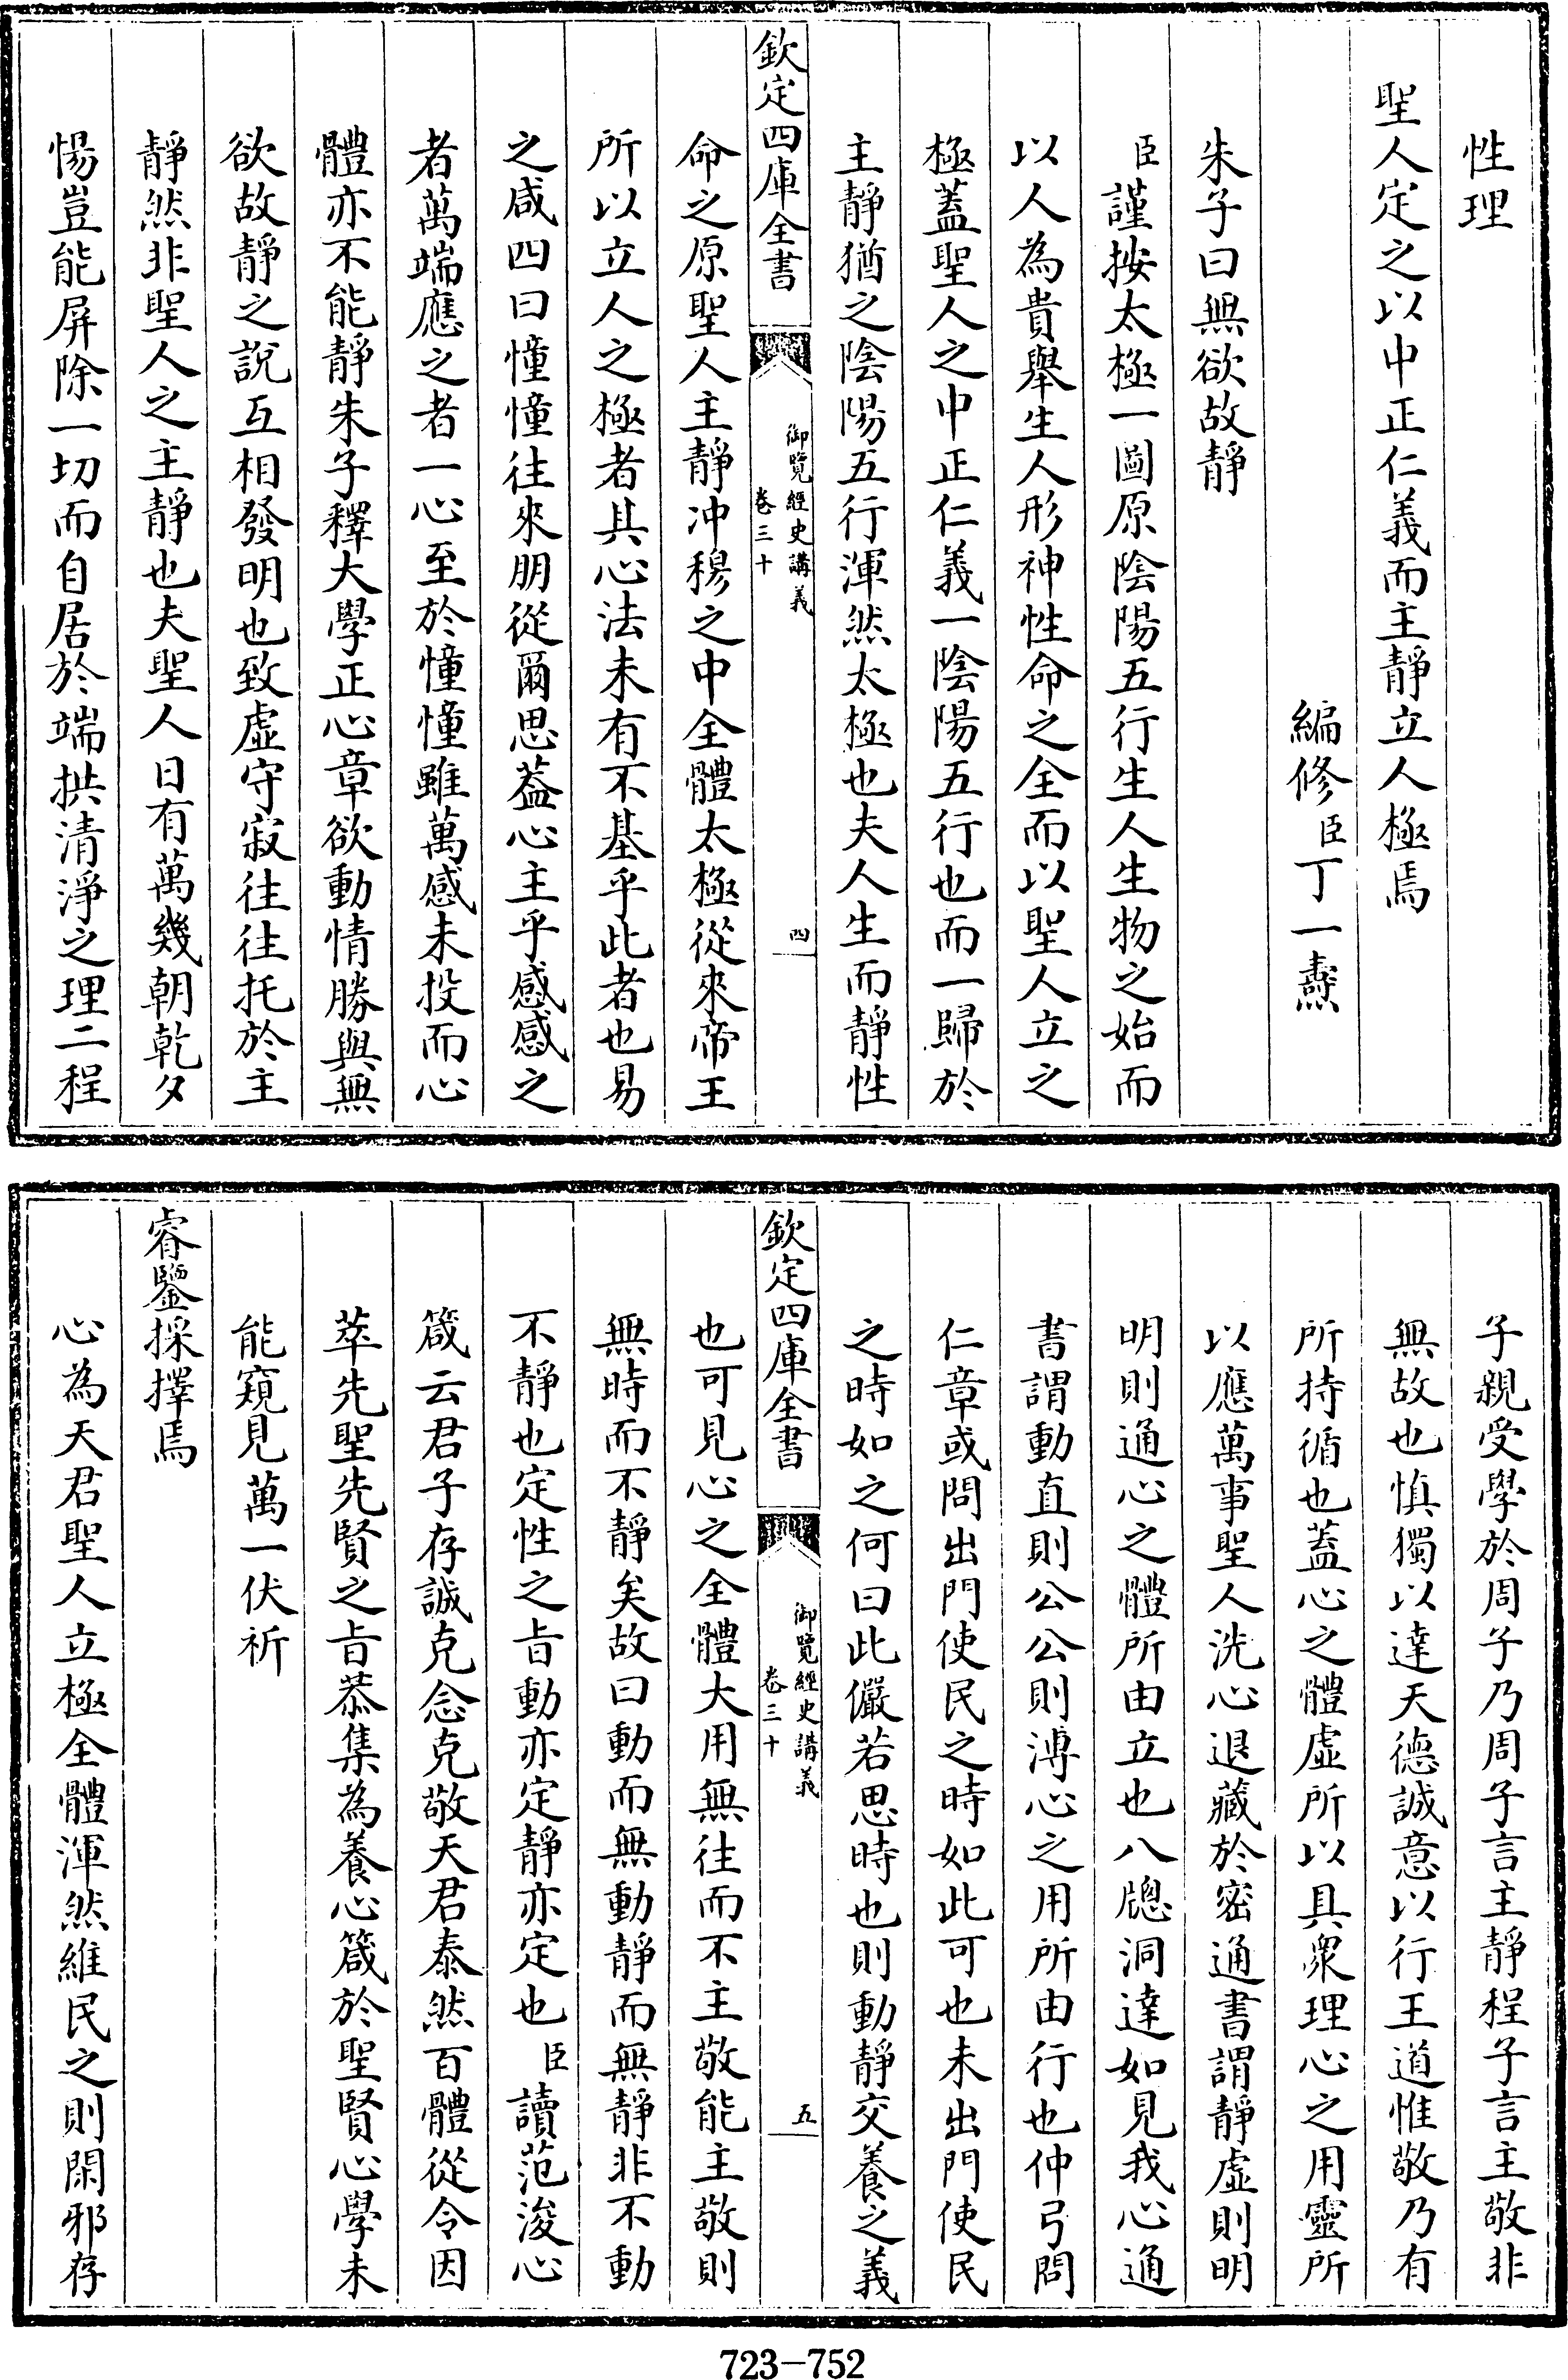 性理
聖人定之以中正仁義而主靜立人極焉
編修臣丁一燾
朱子曰無欲故靜
臣謹按太極一圖原陰陽五行生人生物之始而
以人為貴舉生人形神性命之全而以聖人立之
極蓋聖人之中正仁義一陰陽五行也而一歸於
主靜猶之陰陽五行渾然太極也夫人生而靜性
欽定四庫全書
御覽經史講義
卷三十
四
命之原聖人主靜冲穆之中全體太極從來帝王
所以立人之極者其心法未有不基乎此者也易
之咸四曰憧憧往來朋從爾思葢心主乎感感之
者萬端應之者一心至於憧憧雖萬感未投而心
體亦不能靜朱子釋大學正心章欲動情勝與無
欲故靜之說互相發明也致虛守寂往往托於主
靜然非聖人之主靜也夫聖人日有萬幾朝乾夕
惕豈能屏除一切而自居於端拱清淨之理二程
子親受學於周子乃周子言主靜程子言主敬非
無故也慎獨以達天德誠意以行王道惟敬乃有
所持循也蓋心之體虛所以具衆理心之用靈所
以應萬事聖人洗心退藏於密通書謂靜虛則明
明則通心之體所由立也八牕洞達如見我心通
書謂動直則公公則溥心之用所由行也仲弓問
仁章或問出門使民之時如此可也未出門使民
之時如之何曰此儼若思時也則動靜交養之義
欽定四庫全書
御覽經史講義
卷三十
五
也可見心之全體大用無往而不主敬能主敬則
無時而不靜矣故曰動而無動靜而無靜非不動
不靜也定性之旨動亦定靜亦定也臣讀范浚心
箴云君子存誠克念克敬天君泰然百體從令因
萃先聖先賢之旨恭集為養心箴於聖賢心學未
能窺見萬一伏祈
睿鑒採擇焉
心為天君聖人立極全體渾然維民之則閑邪存
723-752